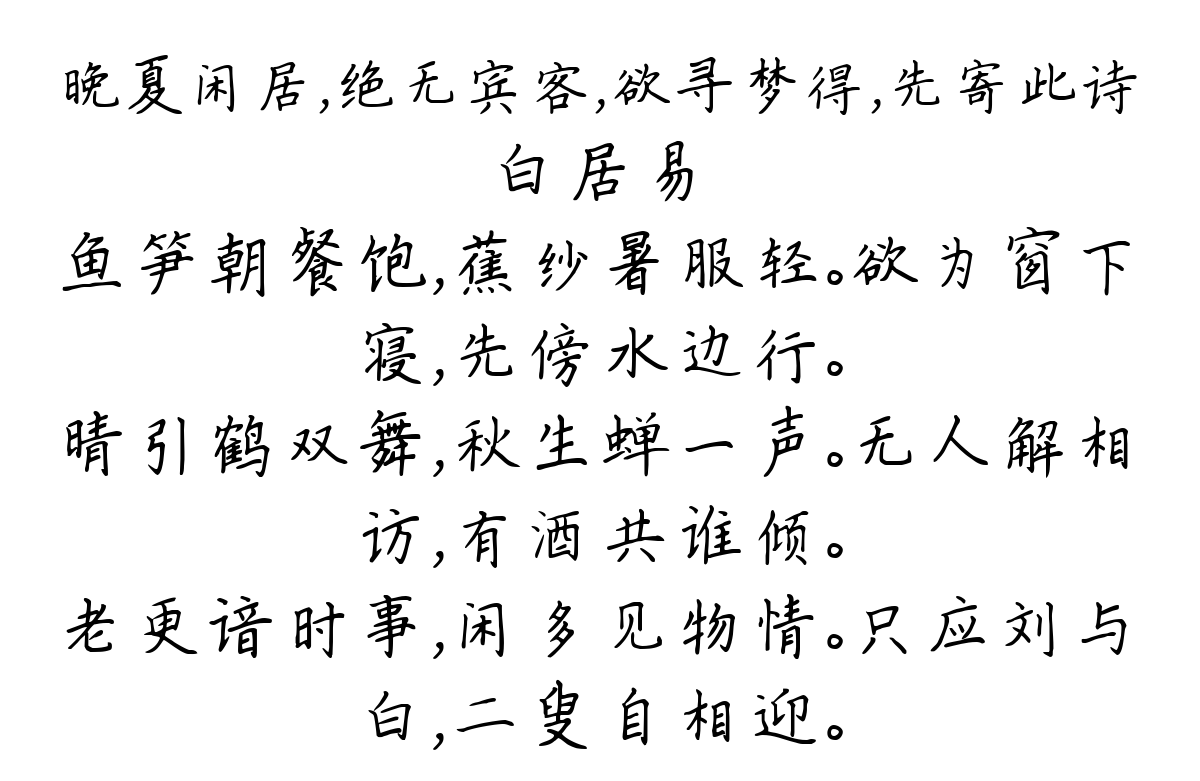 晚夏闲居,绝无宾客,欲寻梦得,先寄此诗
白居易
鱼笋朝餐饱,蕉纱暑服轻。欲为窗下
寝,先傍水边行。
晴引鹤双舞,秋生蝉一声。无人解相
访,有酒共谁倾。
老更谙时事,闲多见物情。只应刘与
白,二叟自相迎。